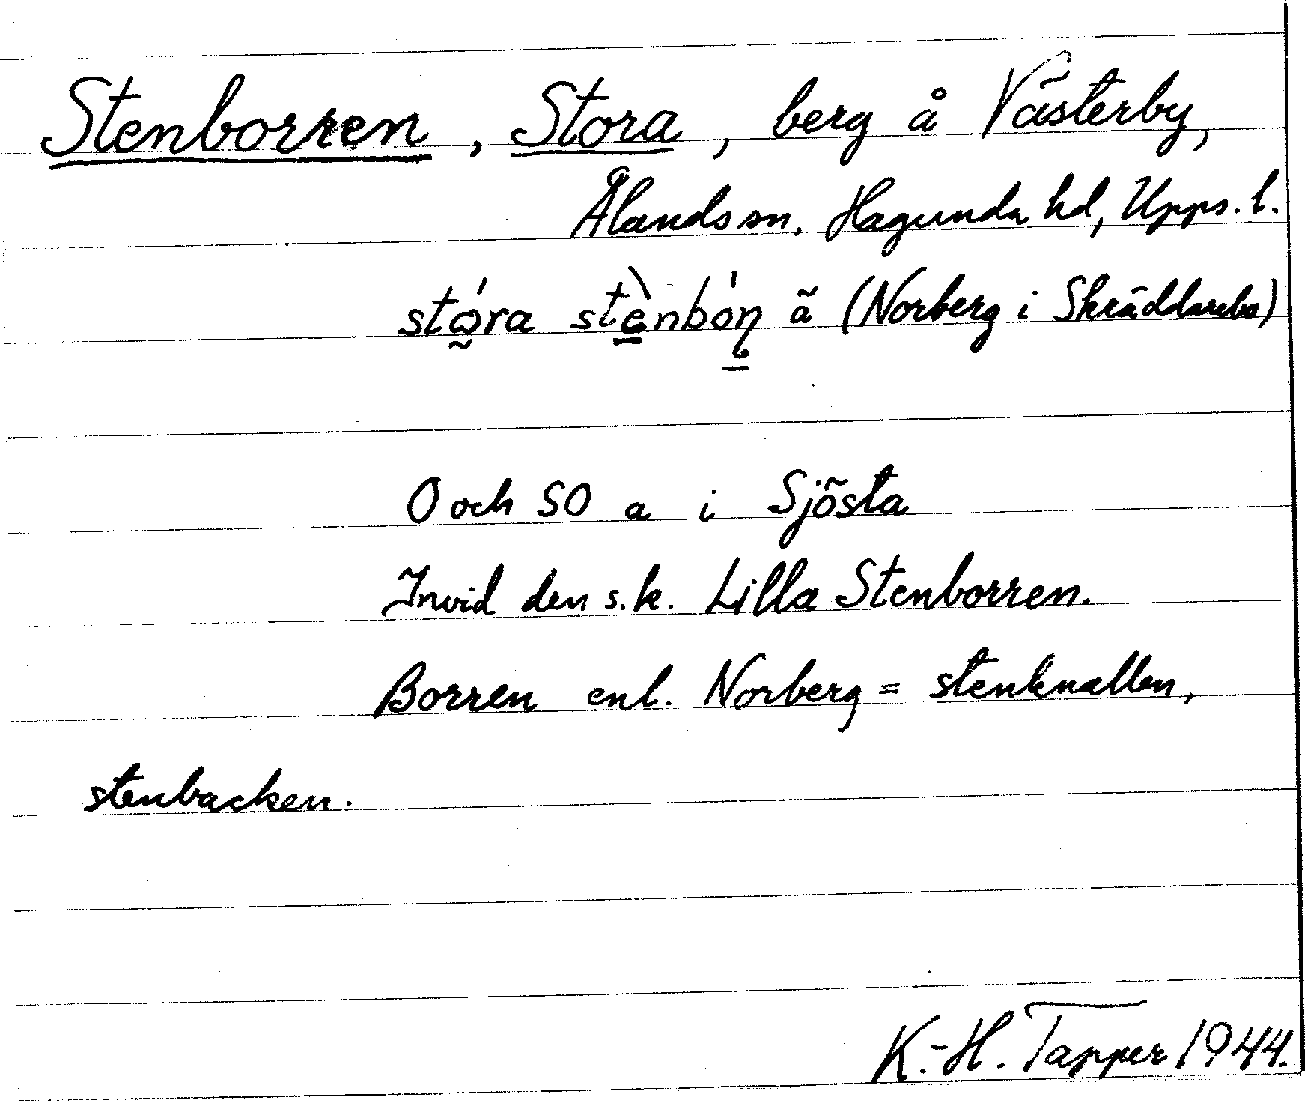 Stenborren, Stora, berg å Västerby,
Ålands sn, Hagunda hd, Upps. l.
stó̰ra stè̱nbóṉ ã (Norberg i Skräddarebo)
O och SO a i Sjösta
Invid den s.k. Lilla Stenborren.
Borren enl. Norberg = stenknallen,
stenbacken.
K.-H. Tapper 1944.